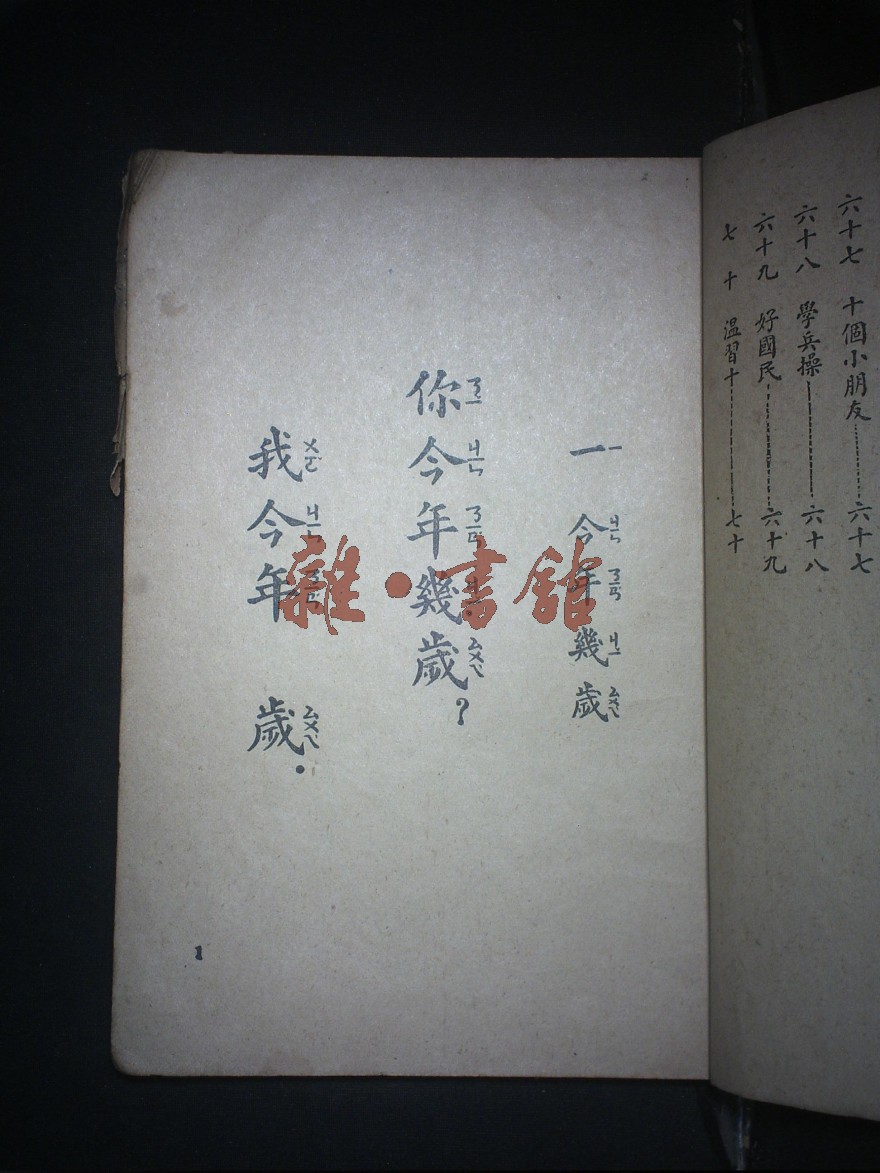 六十七　十個小朋友………六十七
六十八　學兵操………六十八
六十九　好國民………六十九
七十　温習十………七十
一　今年幾歲
ㄧ　ㄐㄧㄣ　ㄋㄧㄢ　ㄐㄧ　ㄙㄨㄟ
你今年幾歲？
ㄋㄧ　ㄐㄧㄣ　ㄋㄧㄢ　ㄐㄧ　ㄙㄨㄟ
我今年　歲．
ㄨㄛ　ㄐㄧㄣ　ㄋㄧㄢ　ㄙㄨㄟ
1
雜·書館